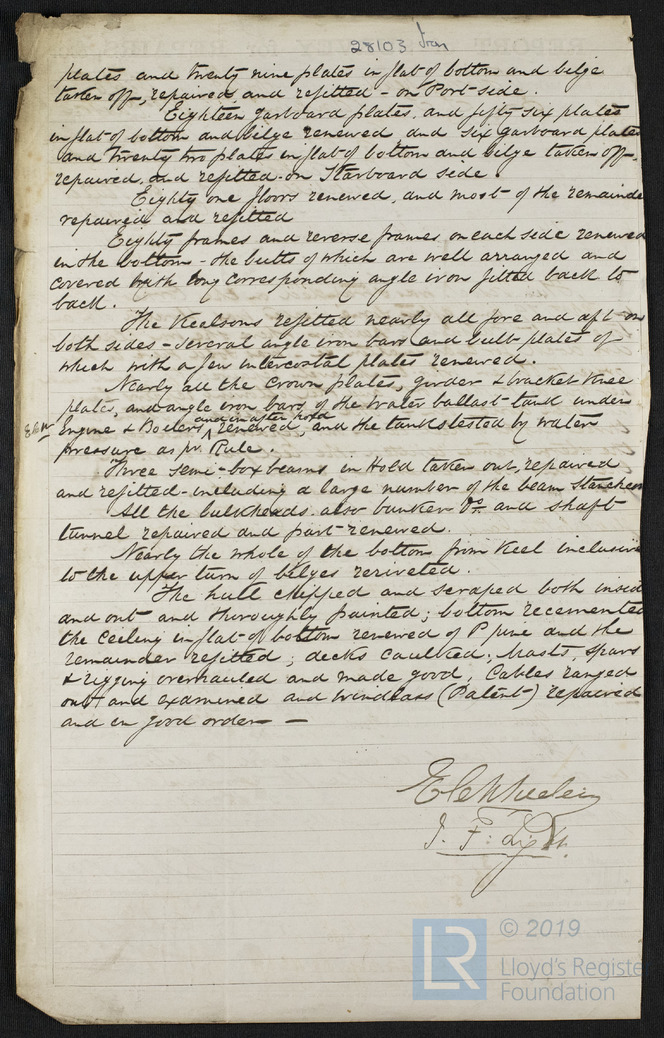 28103 Iron
plates and twenty nine plates in flat of bottom and bilge
taken off, repaired and refitted - on Port side.
Eighteen garboard plates, and fifty six plates
in flat of bottom and bilge renewed and six garboard plates
and twenty two plates in flat of bottom and bilge taken off,
repaired, and refitted - on Starboard side.
Eighty one floors renewed, and most of the remainde
repaired and refitted
Eighty frames and reverse frames on each side renewed
in the bottom - the butts of which are well arranged and
covered with long corresponding angle iron fitted back to
back.
The Keelsons refitted nearly all fore and aft on
both sides - several angle iron bars and bulb plates of
which with a few intercostal plates renewed.
Nearly all the crown plates, girder & bracket knee
plates, and angle iron bars of the water ballast tank under
and in after hold
Engine & Boilers ^ renewed, and the tanks tested by water
pressure as pr. Rule.
Three semi-box beams in Hold taken out, repaired
and refitted - including a large number of the beam stancheon
All the bulkheads. also bunker Do. and shaft
tunnel repaired and part renewed.
Nearly the whole of the bottom from keel inclusive
to the upper turn of bilges reriveted.
The hull chipped and scraped both insid
and out and thoroughly painted; bottom recemented
the ceiling in flat of bottom renewed of P pine and the
remainder refitted; decks caulked; Masts, spars
& rigging overhauled and made good, Cables ranged
out and examined and windlass (Patent) repaired
and in good order -
J. F. Light.
© 2019
LR
Lloyd's Registe
Foundation